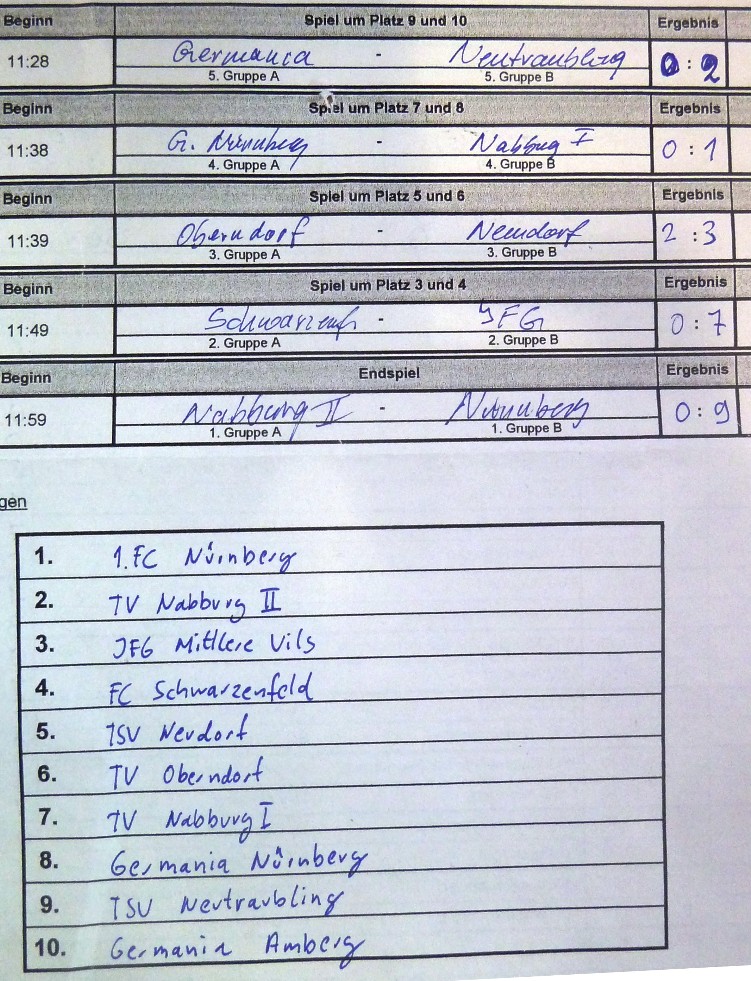 Beginn Spiel um Platz 9 und 10 Ergebnis
11:28 Germania - Neutraubling 0 : 2
5. Gruppe A 5. Gruppe B
Beginn Spiel um Platz 7 und 8 Ergebnis
11:38 G. Nürnberg - Nabburg I 0 : 1
4. Gruppe A 4. Gruppe B
Beginn Spiel um Platz 5 und 6 Ergebnis
11:39 Oberndorf - Neudorf 2 : 3
3. Gruppe A 3. Gruppe B
Beginn Spiel um Platz 3 und 4 Ergebnis
11:49 - JFG 0 : 7
2. Gruppe A 2. Gruppe B
Beginn Endspiel Ergebnis
11:59 Nabburg II - Nürnberg 0 : 9
1. Gruppe A 1. Gruppe B
gen
1. 1. FC Nürnberg
2. TV Nabburg II
3. JFG Mittlere Vils
4. FC Schwarzenfeld
5. TSV Neudorf
6. TV Oberndorf
7. TV Nabburg I
8. Germania Nürnberg
9. TSV Neutraubling
10. Germania Amberg